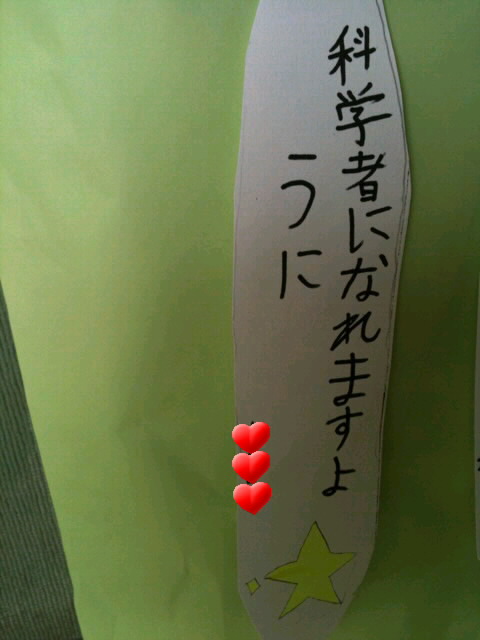 科学者になれますよ
うに